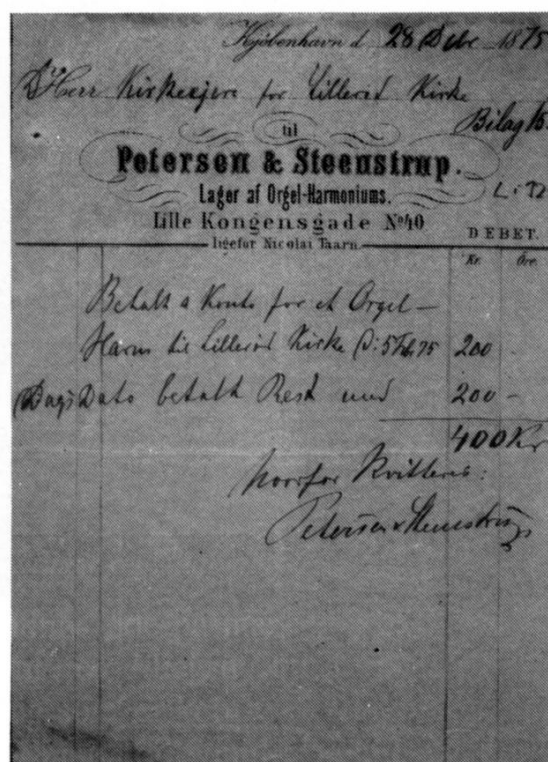 Kjöbenhavn d. 28 Debr 1875
Herr Kirkeejere for Lilleröd Kirke
Bilag 15
til
Petersen & Steenstrup.
Lager af Orgel-Harmoniums.
Lille Kongensgade No 40
ligefor Nicolai Taarn.
DEBET.
Kr. Öre.
Betalt a Konto for et Orgel-
Harm til Lilleröd Kirke D: 5 Feb. 75 200
Dags Dato betalt Rest med 200 -
400 Kr
hvorfor kvitteres:
Petersen & Steenstrup